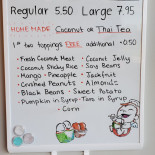 Regular 5.50 Large 7.95
HOME MADE Coconut or Thai Tea
1st two toppings FREE additional +0.50
• Fresh Coconut Meat • Coconut Jelly
• Coconut Sticky Rice • Soy Beans
• Mango • Pineapple • Jackfruit
• Crushed Peanuts • Almonds
• Black Beans • Sweet Potato
• Pumpkin in Syrup • Taro in Syrup
• Corn